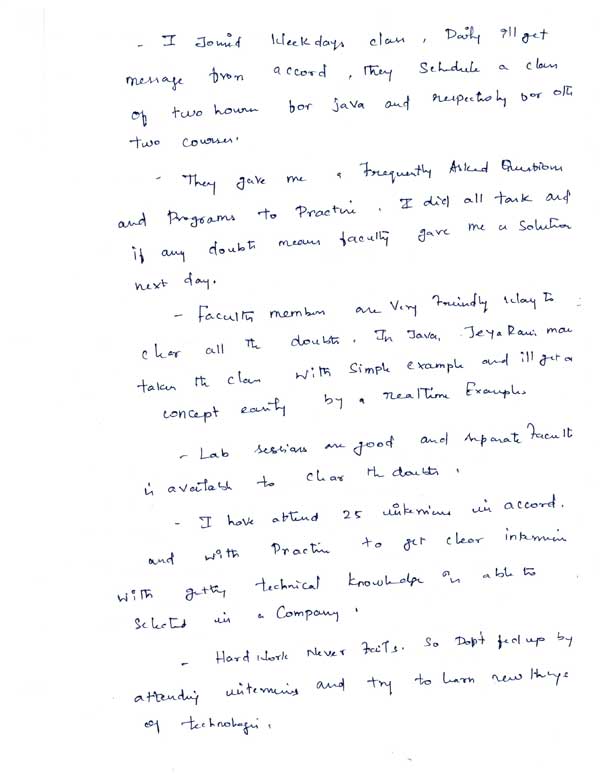 - I Joined Weekdays class, Daily I'll get
message from accord, They Schedule a class
of two hours for java and respectively for oth
two courses.
- They gave me a Frequently Asked Questions
and Programs to Practice. I did all task and
if any doubts means faculty gave me a Solution
next day.
- Faculty members are Very Friendly Way to
clear all the doubts. In Java, Jeya Rani mam
taken the class with Simple example and i'll get a
concept easily by a realTime Examples
- Lab sessions are good and separate Facult
is available to clear the doubts.
- I have attend 25 interviews in accord.
and with Practice to get clear interview
with getting technical knowledge able to
Selected in a Company.
- Hard Work Never Fails. So Don't feel up by
attending interviews and try to learn new things
of technologies.